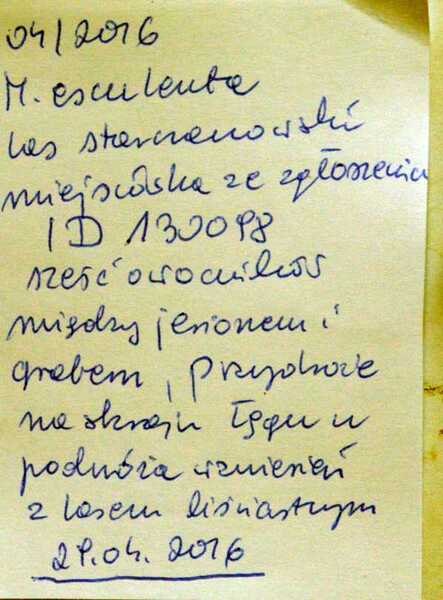 04/2016
M. esculenta
las starzanowski
miejscówka ze zgłoszenia
ID 130098
sześć owocników
między jesionem i
grabem, przydroże
na skraju łęgu u
podnóża wzniesień
z lasem liściastym
29.04.2016